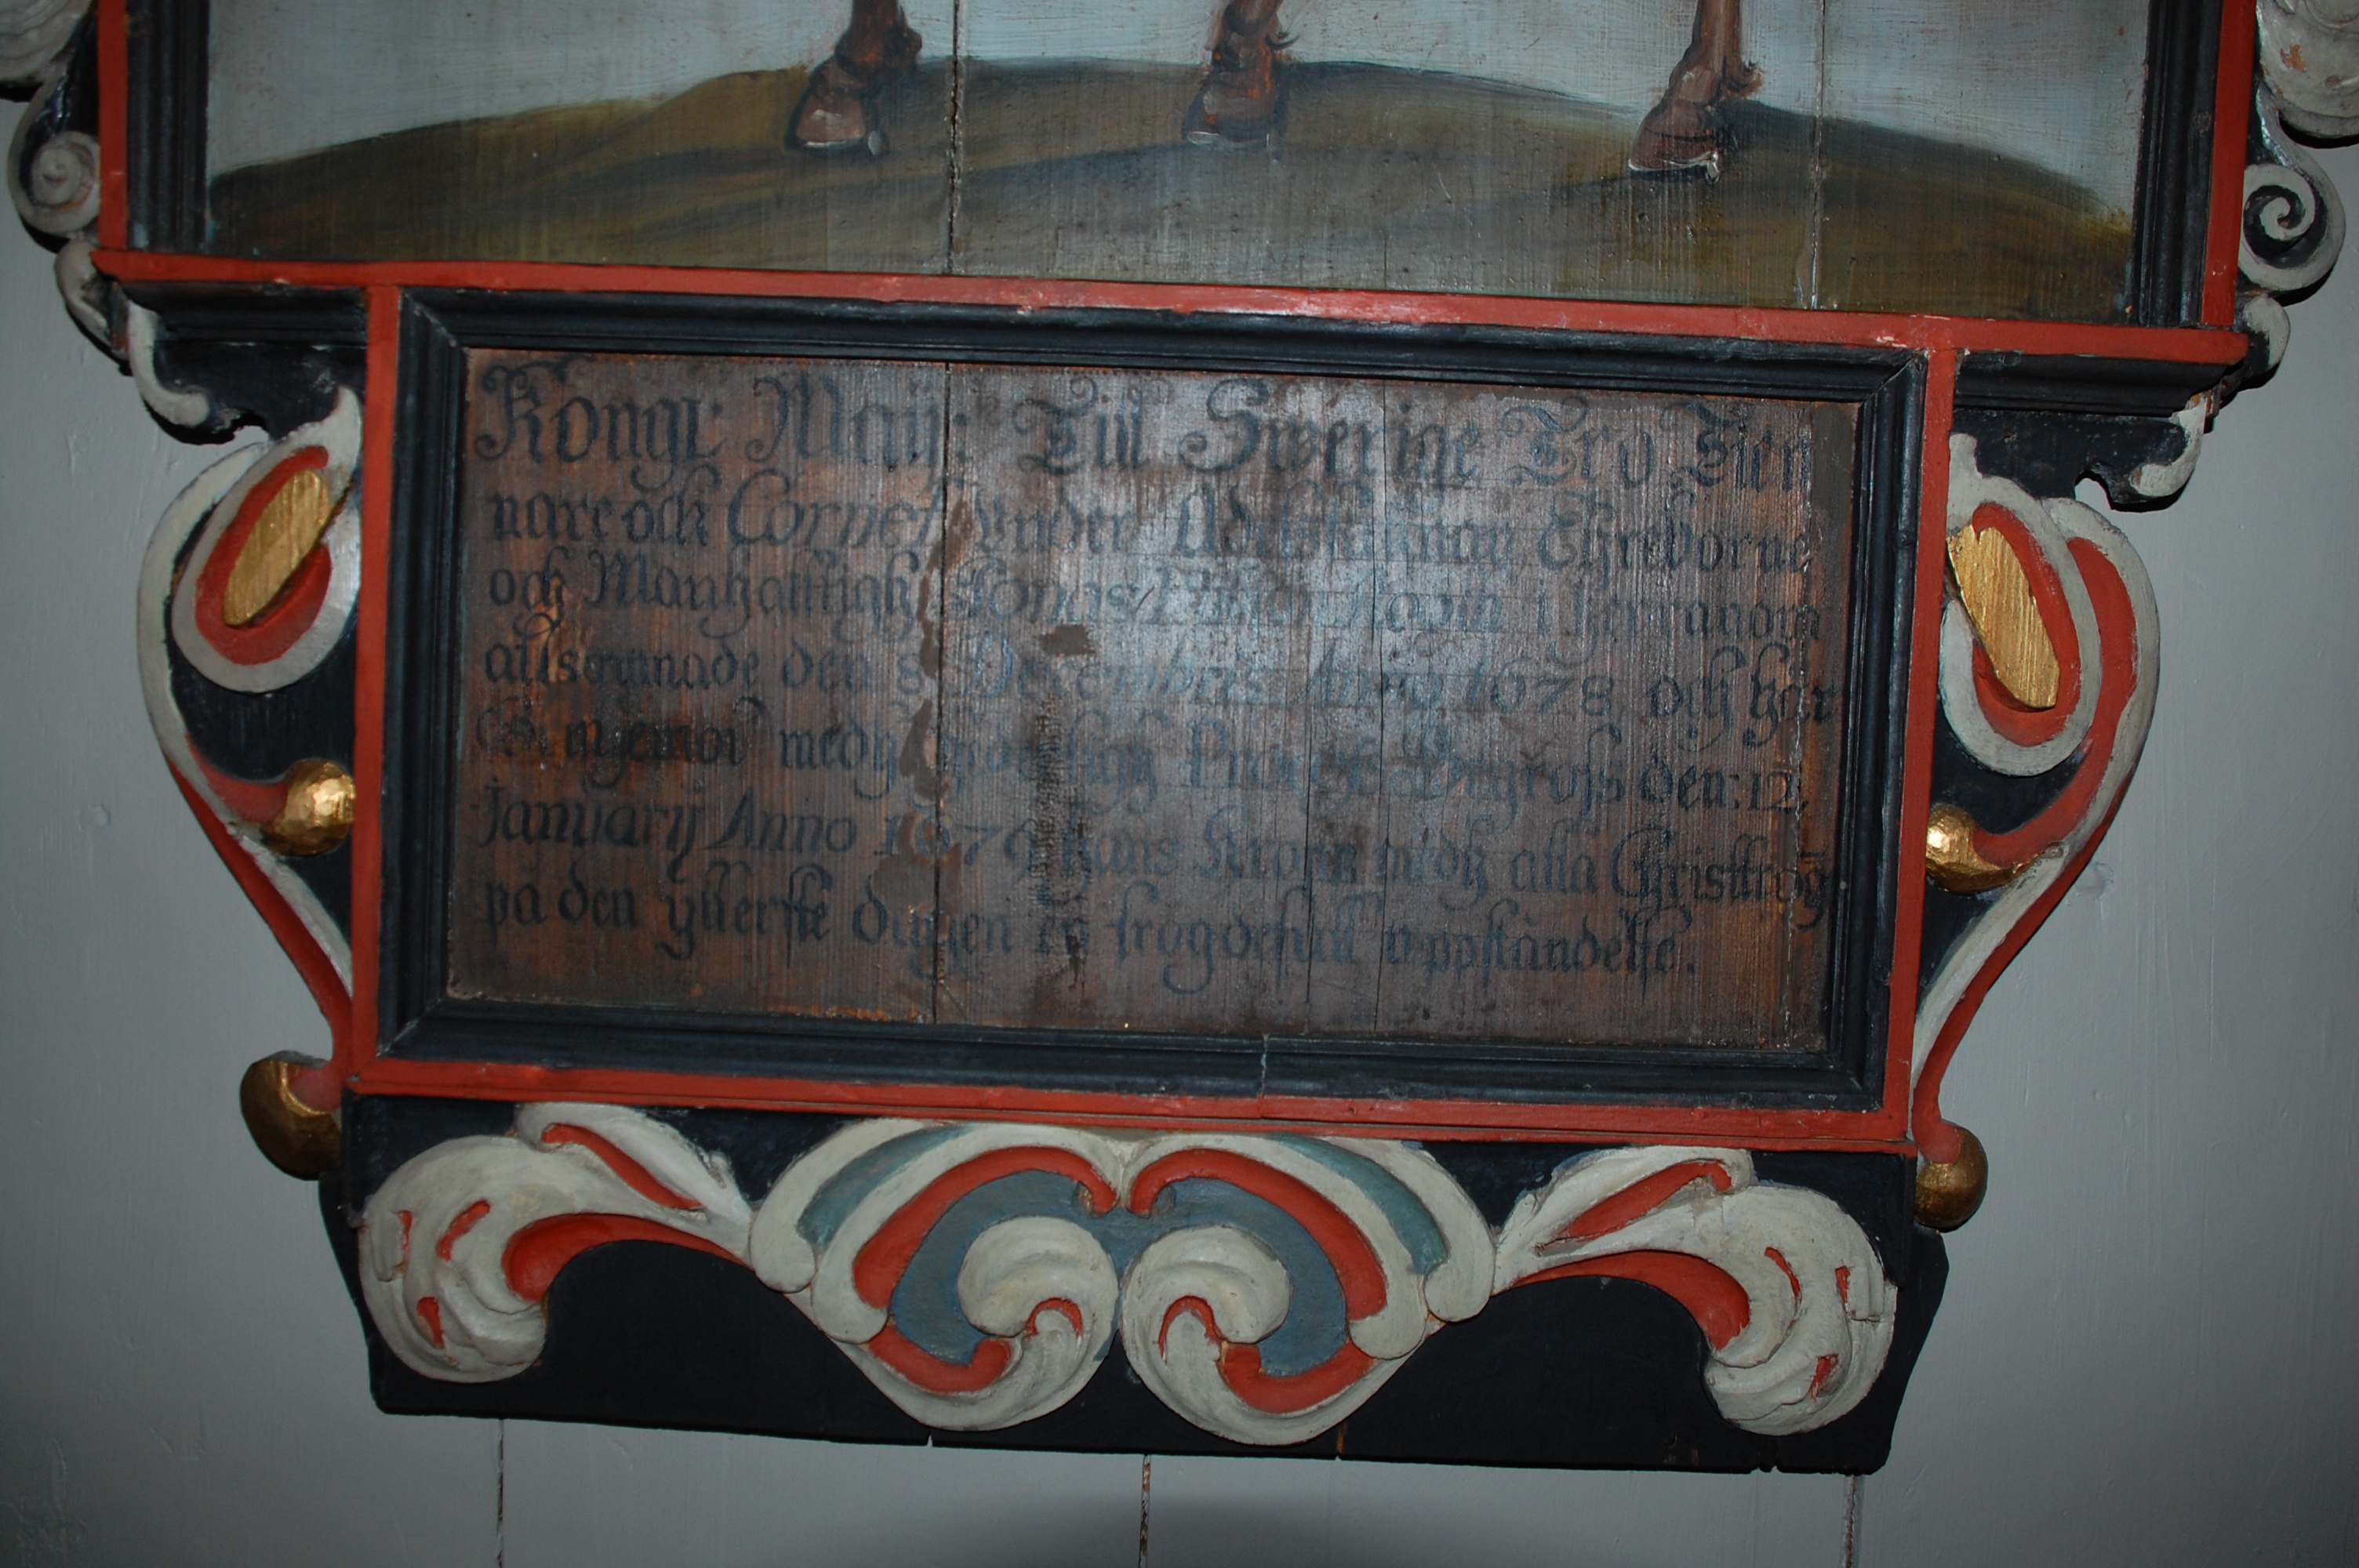 Kongl: Maij: Till Swerige Tro Tien
nare och Cornet Under Adelsfahnan Ehreborne
och Manhafftigh Jöns
affsomnade den 8 Decembris Anno 1678 och här
medh den: 12
January Anno 1679 hans Kropp medh alla Christtrog
på den ytterste dagen en frögdefull uppståndelsse.